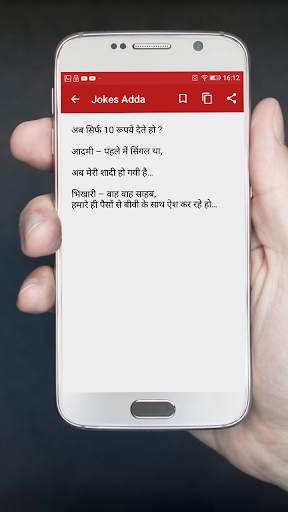 16:12
Jokes Adda
अब सिर्फ 10 रूपये देते हो ?
आदमी – पहले में सिंगल था,
अब मेरी शादी हो गयी है...
भिखारी – वाह वाह साहब,
हमारे ही पैसों से बीवी के साथ ऐश कर रहे हो...